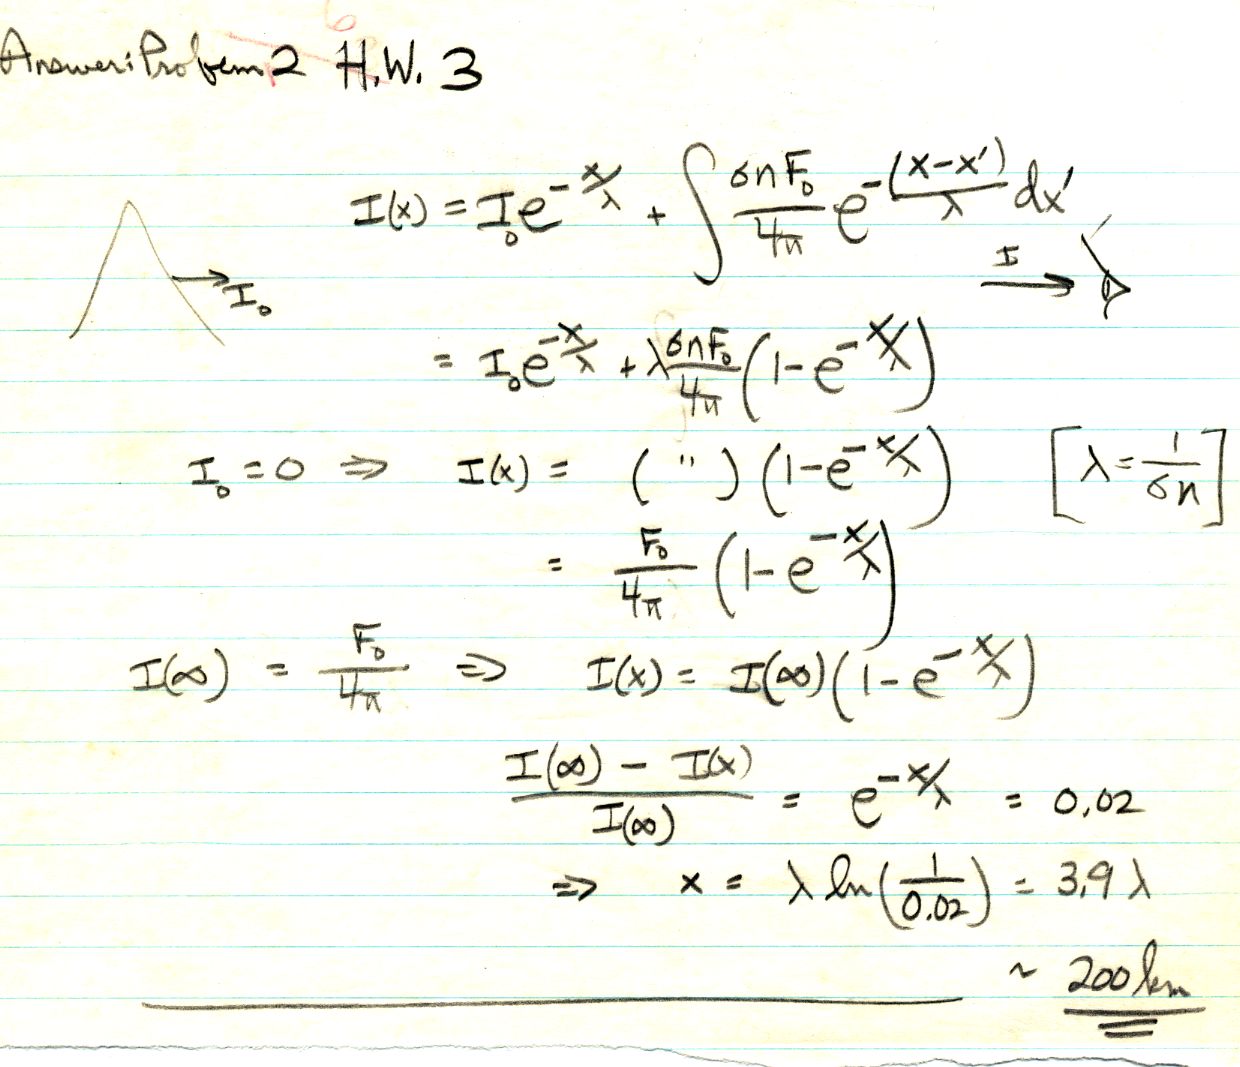 Answer: Problem 2 H.W. 3
I(x) = I₀e^(-x/λ) + ∫ σnF₀/4π e^(-(x-x')/λ) dx'
I₀
I
= I₀e^(-x/λ) + λ σnF₀/4π (1-e^(-x/λ))
I₀ = 0 ⇒ I(x) = ( " ) (1-e^(-x/λ)) [λ = 1/σn]
= F₀/4π (1-e^(-x/λ))
I(∞) = F₀/4π ⇒ I(x) = I(∞)(1-e^(-x/λ))
I(∞) - I(x) / I(∞) = e^(-x/λ) = 0.02
⇒ x = λ ln(1/0.02) = 3.9 λ
~ 200 km